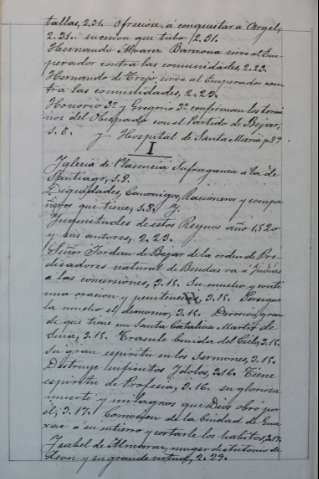 tallas, 2.31. Ofrecese á conquistar á Argel,
2.31. sucesos que tubo, 2.31.
Hernando Alvarez Barrona sirve al Em-
perador contra las comunidades 2.23.
Hernando de Trejo, sirve al Emperador con-
tra las comunidades, 2.23.
Honorio 3º y Gregorio 9º confirman los térmi-
nos del Obispado con el Partido de Bejar,
y Hospital de Santa María p. 27
I
Iglesia de Plasencia Sufraganea á la de
Santiago, 1.9.
Dignidades, Canonigos, Racioneros y compa-
ñeros que tiene,
de estos Reynos año 1,520
y sus autores, 2.23.
Señor Jordan de Bejar de la orden de Pre-
dicadores natural de va á Indias
á las conversiones, 3.16. Su mucha y conti-
nua oracion y penitencia, 3.16. Persigue-
la mucho el demonio, 3.16. Devocion gran-
de que tiene en Santa Catalina Martir de
Sena, 3.16. Traesele del Cielo, 3.16.
Su gran espiritu en los Sermones, 3.16.
Destruye infinitos Idolos, 3.16. Tiene
espiritu de Profesia, 3.16. su gloriosa
muerte y milagros que Dios obró por
él, 3.17. de la Ciudad de Gua-
xac á su entierro y cortarle los habitos, 3.17.
Isabel de Almaraz, muger de Antonio de
Leon y su grande virtud, 2.29.